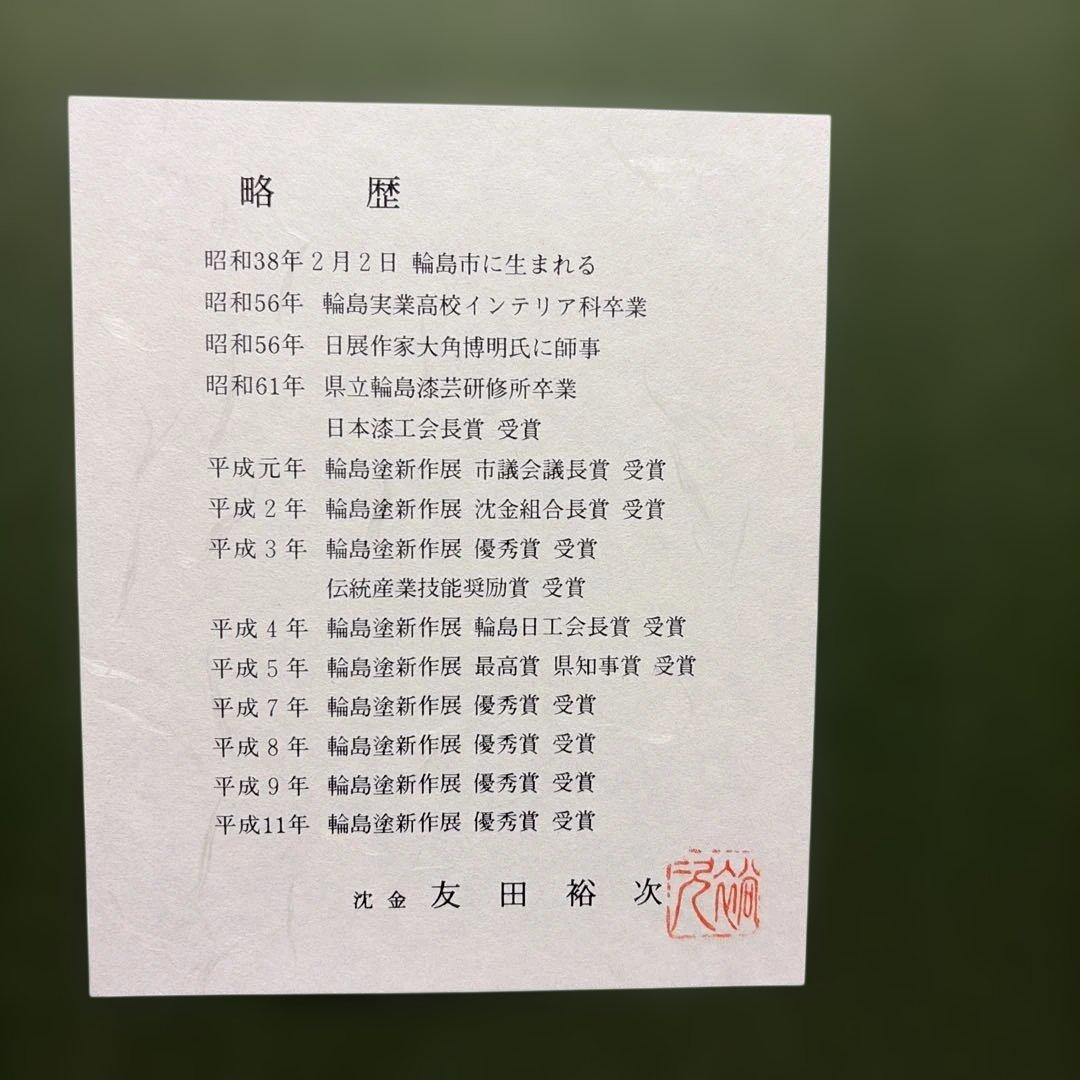 略 歴
昭和38年2月2日 輪島市に生まれる
昭和56年 輪島実業高校インテリア科卒業
昭和56年 日展作家大角博明氏に師事
昭和61年 県立輪島漆芸研修所卒業
日本漆工会長賞 受賞
平成元年 輪島塗新作展 市議会議長賞 受賞
平成2年 輪島塗新作展 沈金組合長賞 受賞
平成3年 輪島塗新作展 優秀賞 受賞
伝統産業技能奨励賞 受賞
平成4年 輪島塗新作展 輪島日工会長賞 受賞
平成5年 輪島塗新作展 最高賞 県知事賞 受賞
平成7年 輪島塗新作展 優秀賞 受賞
平成8年 輪島塗新作展 優秀賞 受賞
平成9年 輪島塗新作展 優秀賞 受賞
平成11年 輪島塗新作展 優秀賞 受賞
沈金 友田裕次